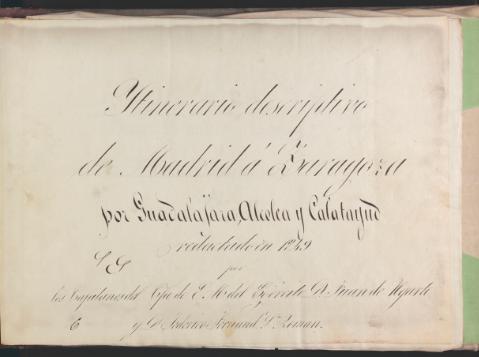 Ytinerario descriptivo
de Madrid á Zaragoza
por Guadalajara, Alcolea y Calatayud
redactado en 1849
por
los Capitanes del Cpo de E. M. del Egército Dn Juan de Ugarte
6 y Dn Federico Fernand Sn Roman.